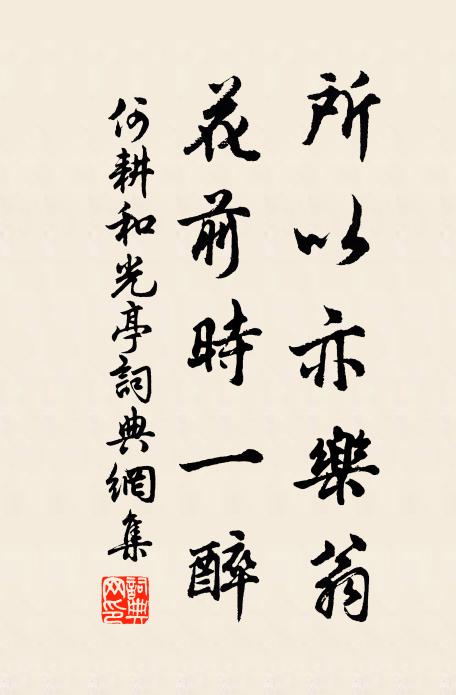 所以亦樂翁
花前時一醉
何耕和光亭詞典網集
詞典网印